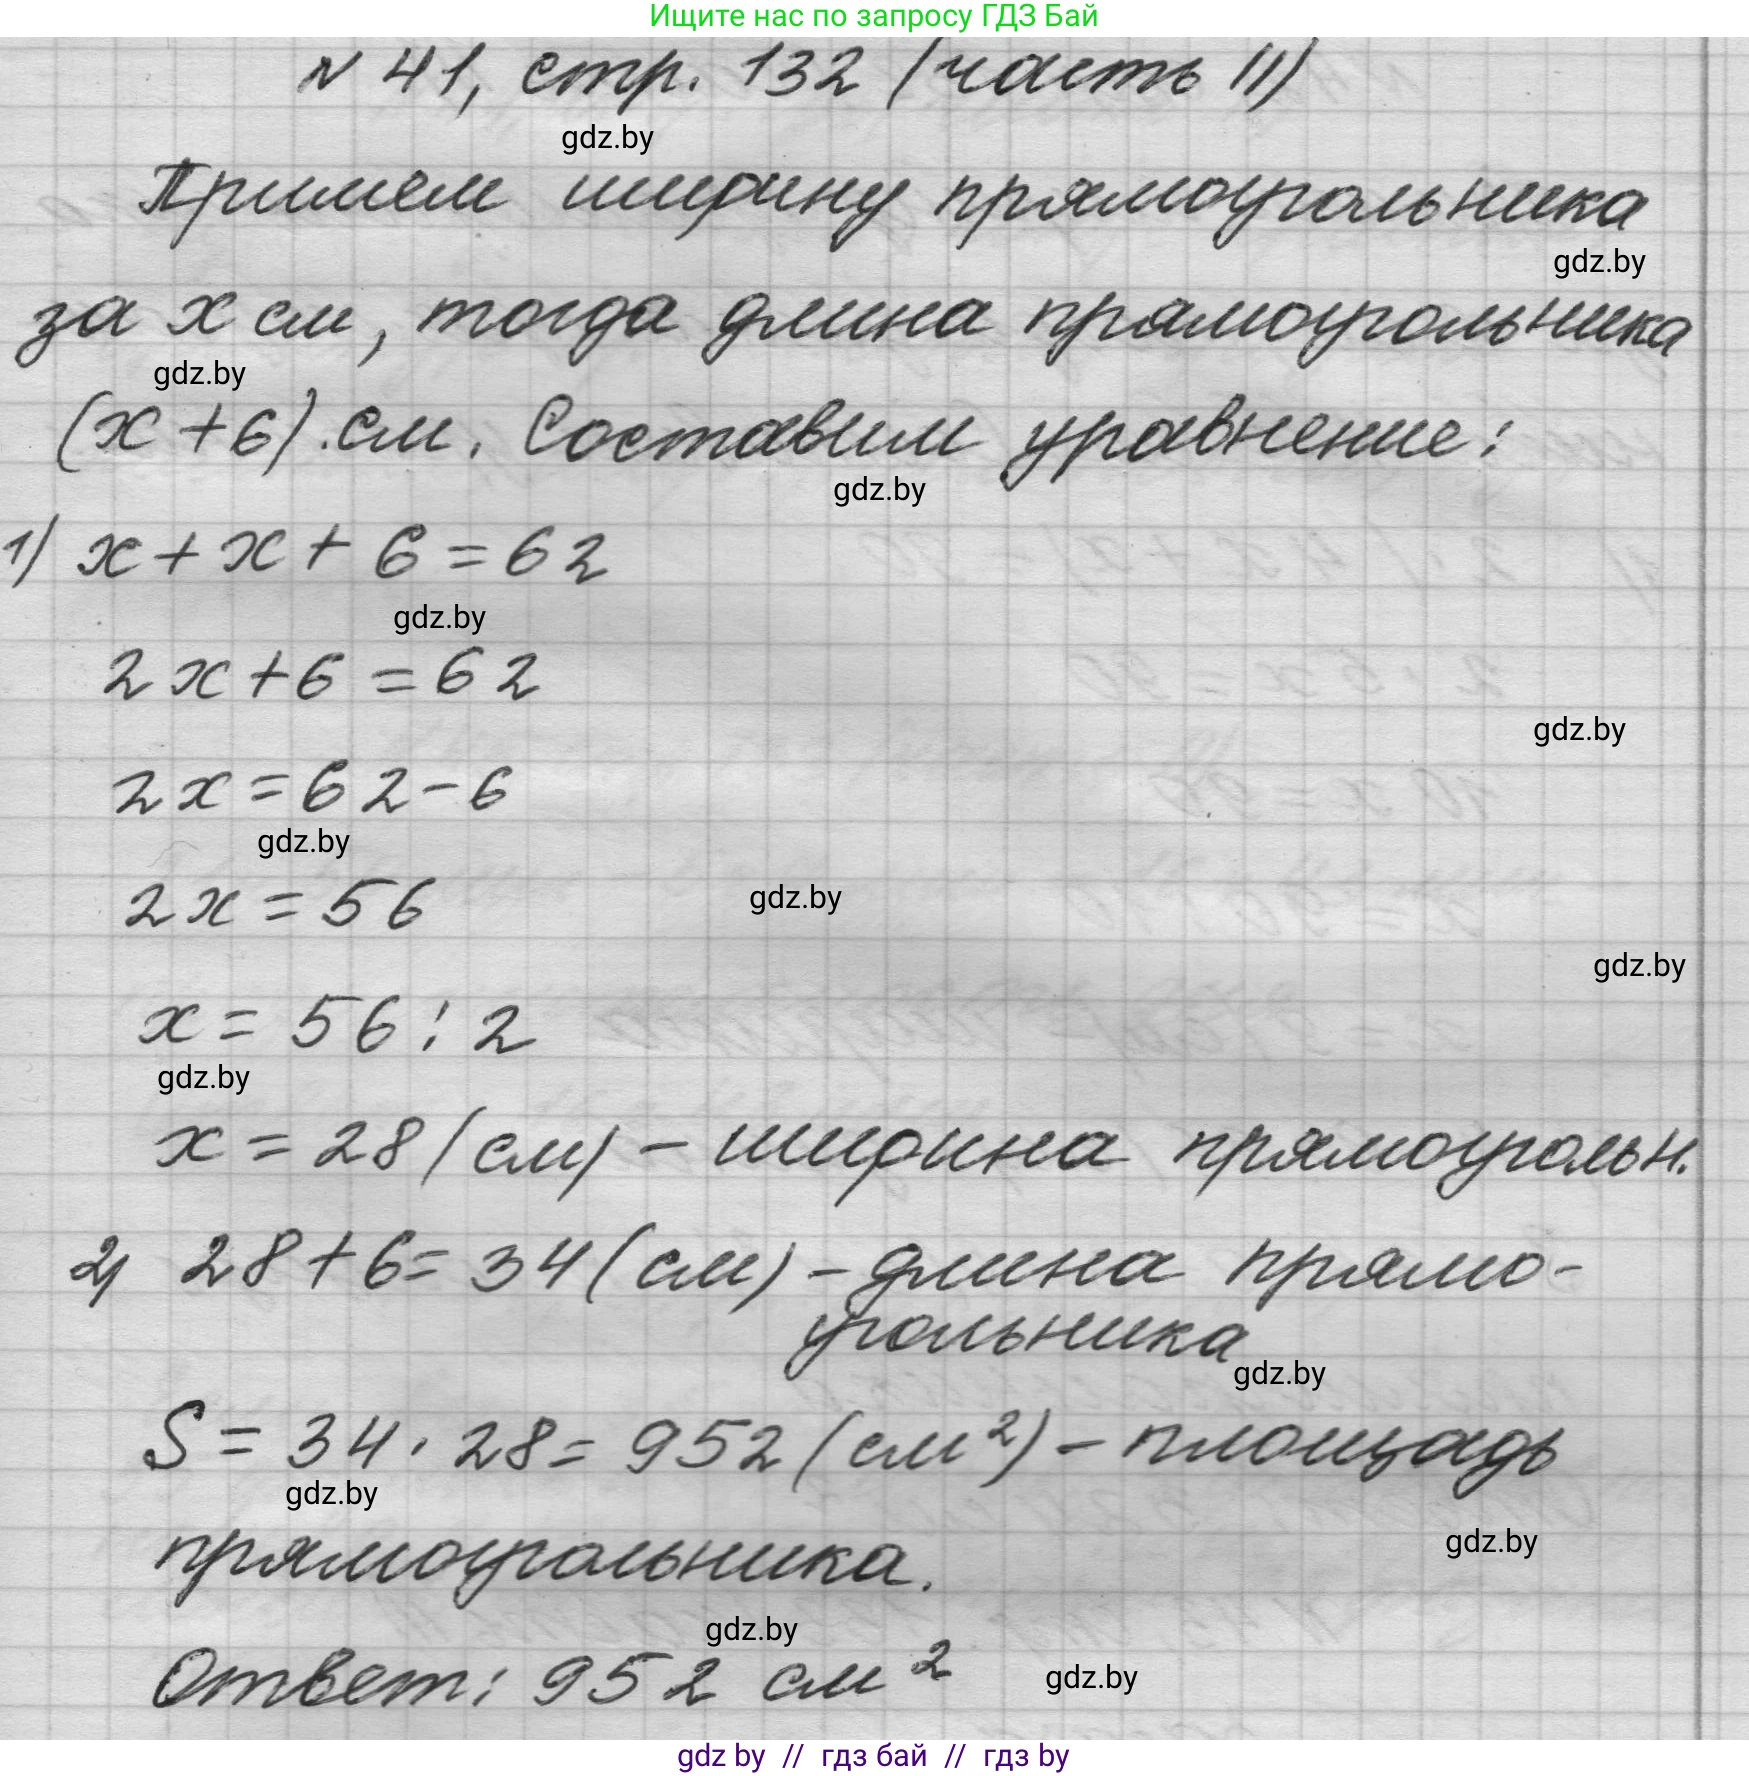 Ищите нас по запросу ГДЗ Бай
№ 41, стр. 132 (часть II)
gdz.by
Примем ширину прямоугольника
gdz.by
за x см, тогда длина прямоугольника
gdz.by
(x + 6) см. Составим уравнение:
gdz.by
1) x + x + 6 = 62
gdz.by
2x + 6 = 62
gdz.by
2x = 62 - 6
gdz.by
2x = 56
gdz.by
gdz.by
x = 56 : 2
gdz.by
x = 28 (см) - ширина прямоугольн.
2) 28 + 6 = 34 (см) - длина прямо-
угольника
gdz.by
S = 34 · 28 = 952 (см²) - площадь
gdz.by
gdz.by
прямоугольника.
gdz.by
Ответ: 952 см²
gdz.by
gdz by // гдз бай // гдз by